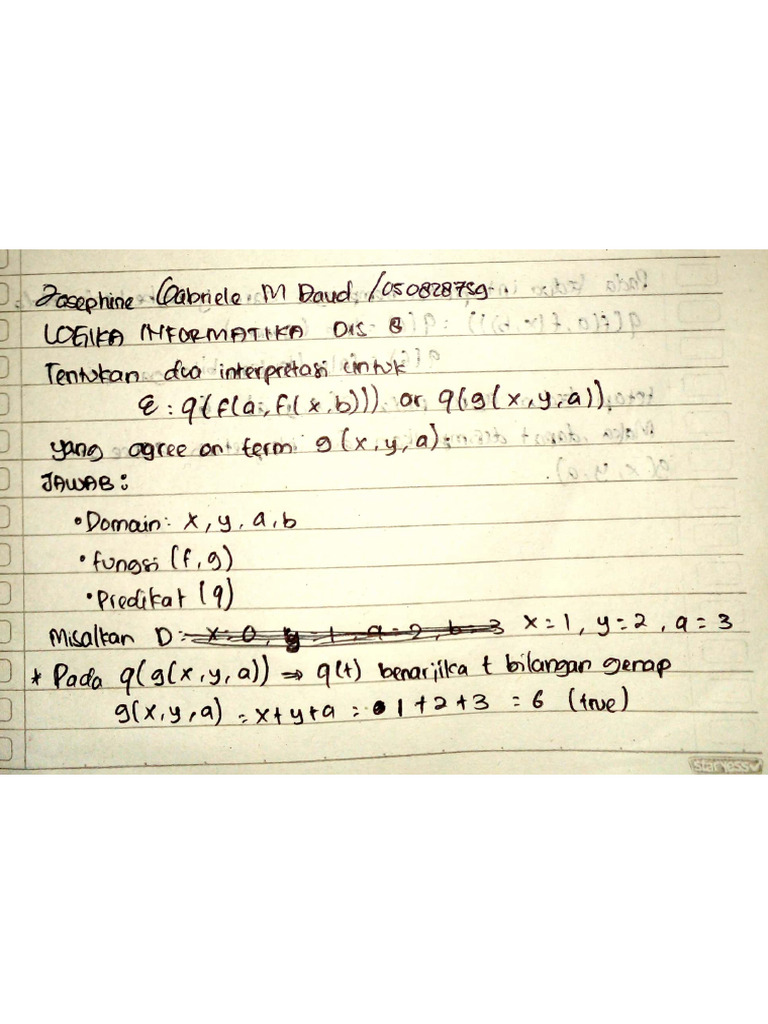 Josephine Gabriele M Daud /050828759
LOGIKA INFORMATIKA DIS B
Tentukan dua interpretasi untuk
E : q(f(a, f(x,b))) or q(g(x,y,a)),
yang agree on term g(x,y,a).
JAWAB:
• Domain: x, y, a, b
• fungsi (f,g)
• Predikat (q)
Misalkan D: x=0, y=1, a=2, b=3 x=1, y=2, a=3
* Pada q(g(x,y,a)) → q(t) benar jika t bilangan genap
g(x,y,a) = x+y+a = 1+2+3 = 6 (true)
starness